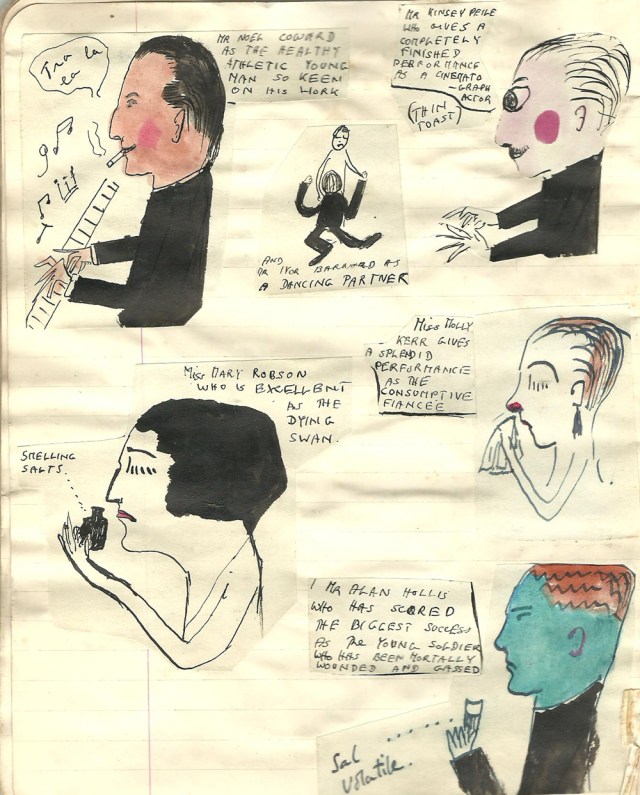 Tra la
la
MR NOEL COWARD
AS THE HEALTHY
ATHLETIC YOUNG
MAN SO KEEN
ON HIS WORK
MR KINSEY PEILE
WHO GIVES A
COMPLETELY
FINISHED
PERFORMANCE
AS A CINEMATO
-GRAPH
ACTOR
(THIN
TOAST)
AND
MR IVOR BARNARD AS
A DANCING PARTNER
MISS MOLLY
KERR GIVES
A SPLENDID
PERFORMANCE
AS THE
CONSUMPTIVE
FIANCÉE
MISS MARY ROBSON
WHO IS EXCELLENT
AS THE
DYING
SWAN.
SMELLING
SALTS
MR ALAN HOLLIS
WHO HAS SCORED
THE BIGGEST SUCCESS
AS THE YOUNG SOLDIER
WHO HAS BEEN MORTALLY
WOUNDED AND GASSED
Sal
Volatile.